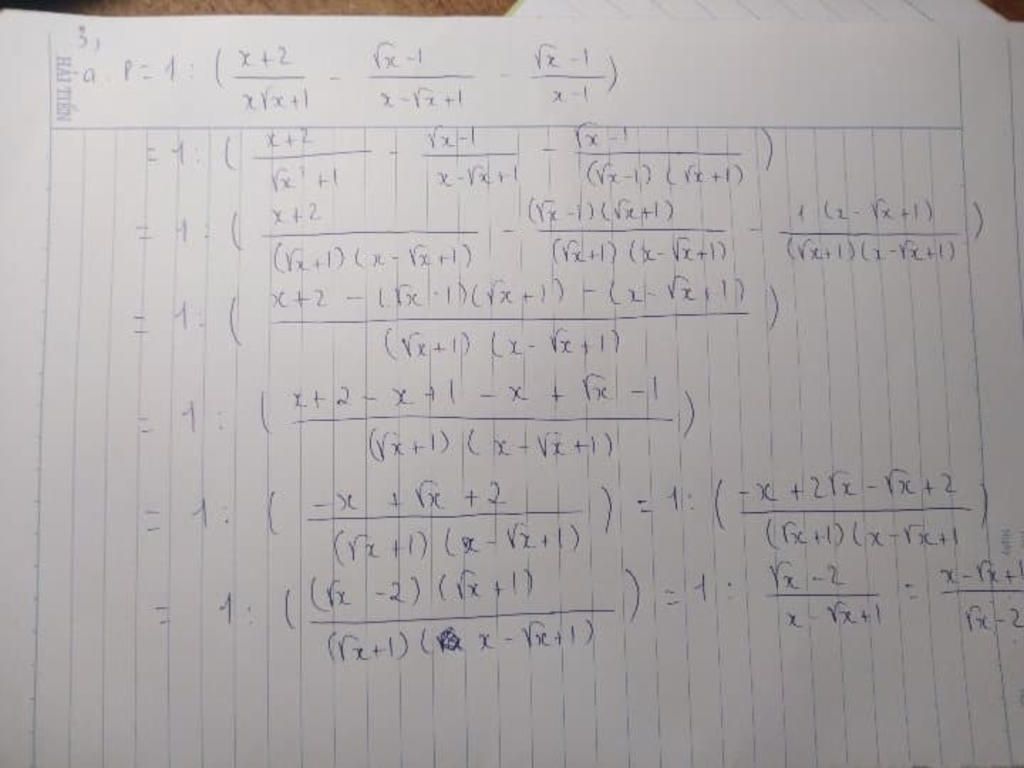 3,
HẢI TIẾN
a. P = 1 : ( (x+2)/(x√x+1) - (√x-1)/(x-√x+1) - (√x-1)/(x-1) )
= 1 : ( (x+2)/(√x³+1) - (√x-1)/(x-√x+1) - (√x-1)/((√x-1)(√x+1)) )
= 1 : ( (x+2)/((√x+1)(x-√x+1)) - ((√x-1)(√x+1))/((√x+1)(x-√x+1)) - (1(x-√x+1))/((√x+1)(x-√x+1)) )
= 1 : ( (x+2-(√x-1)(√x+1)-(x-√x+1))/((√x+1)(x-√x+1)) )
= 1 : ( (x+2-x+1-x+√x-1)/((√x+1)(x-√x+1)) )
= 1 : ( (-x+√x+2)/((√x+1)(x-√x+1)) ) = 1 : ( (-x+2√x-√x+2)/((√x+1)(x-√x+1) )
= 1 : ( ((√x-2)(√x+1))/((√x+1)(x-√x+1)) ) = 1 : (√x-2)/(x-√x+1) = (x-√x+1)/(√x-2)